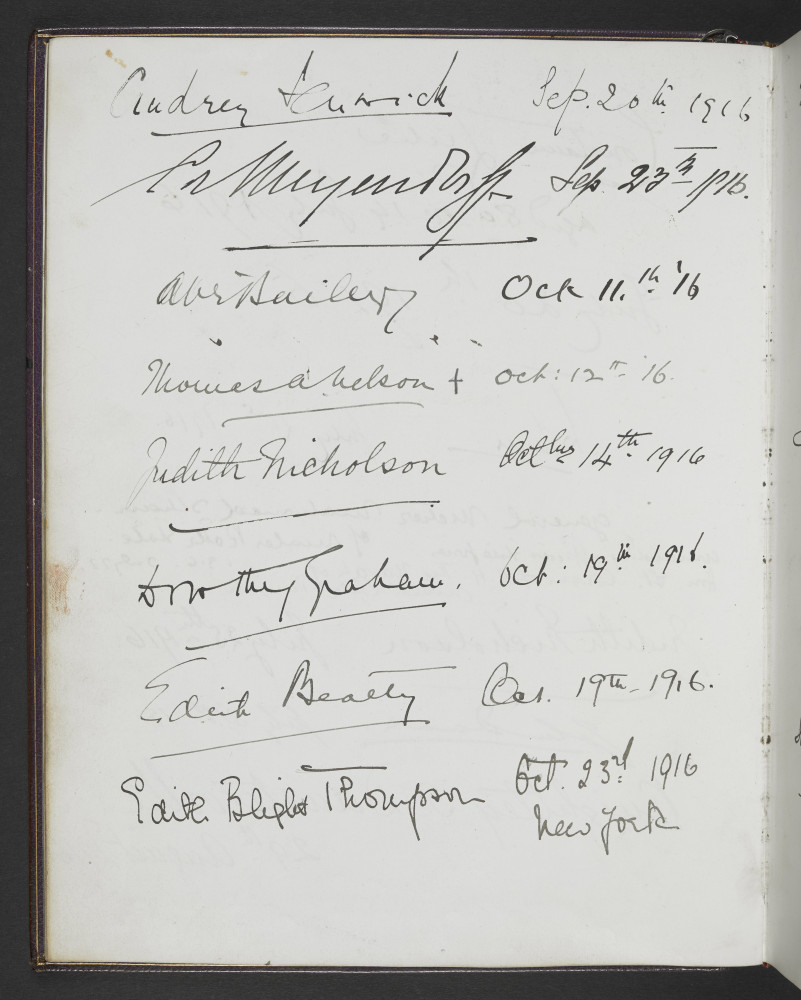 Audrey Fenwick Sep. 20th 1916
Meyendorff Sep. 23rd 1916.
Abe Bailey Oct 11.th '16
Thomas A Nelson + Oct: 12th '16.
Judith Nicholson Octbr 14th 1916
Dorothy Graham. Oct: 19th 1916.
Edith Beatty Oct. 19th 1916.
Edith Blight Thompson Oct. 23rd 1916
New York